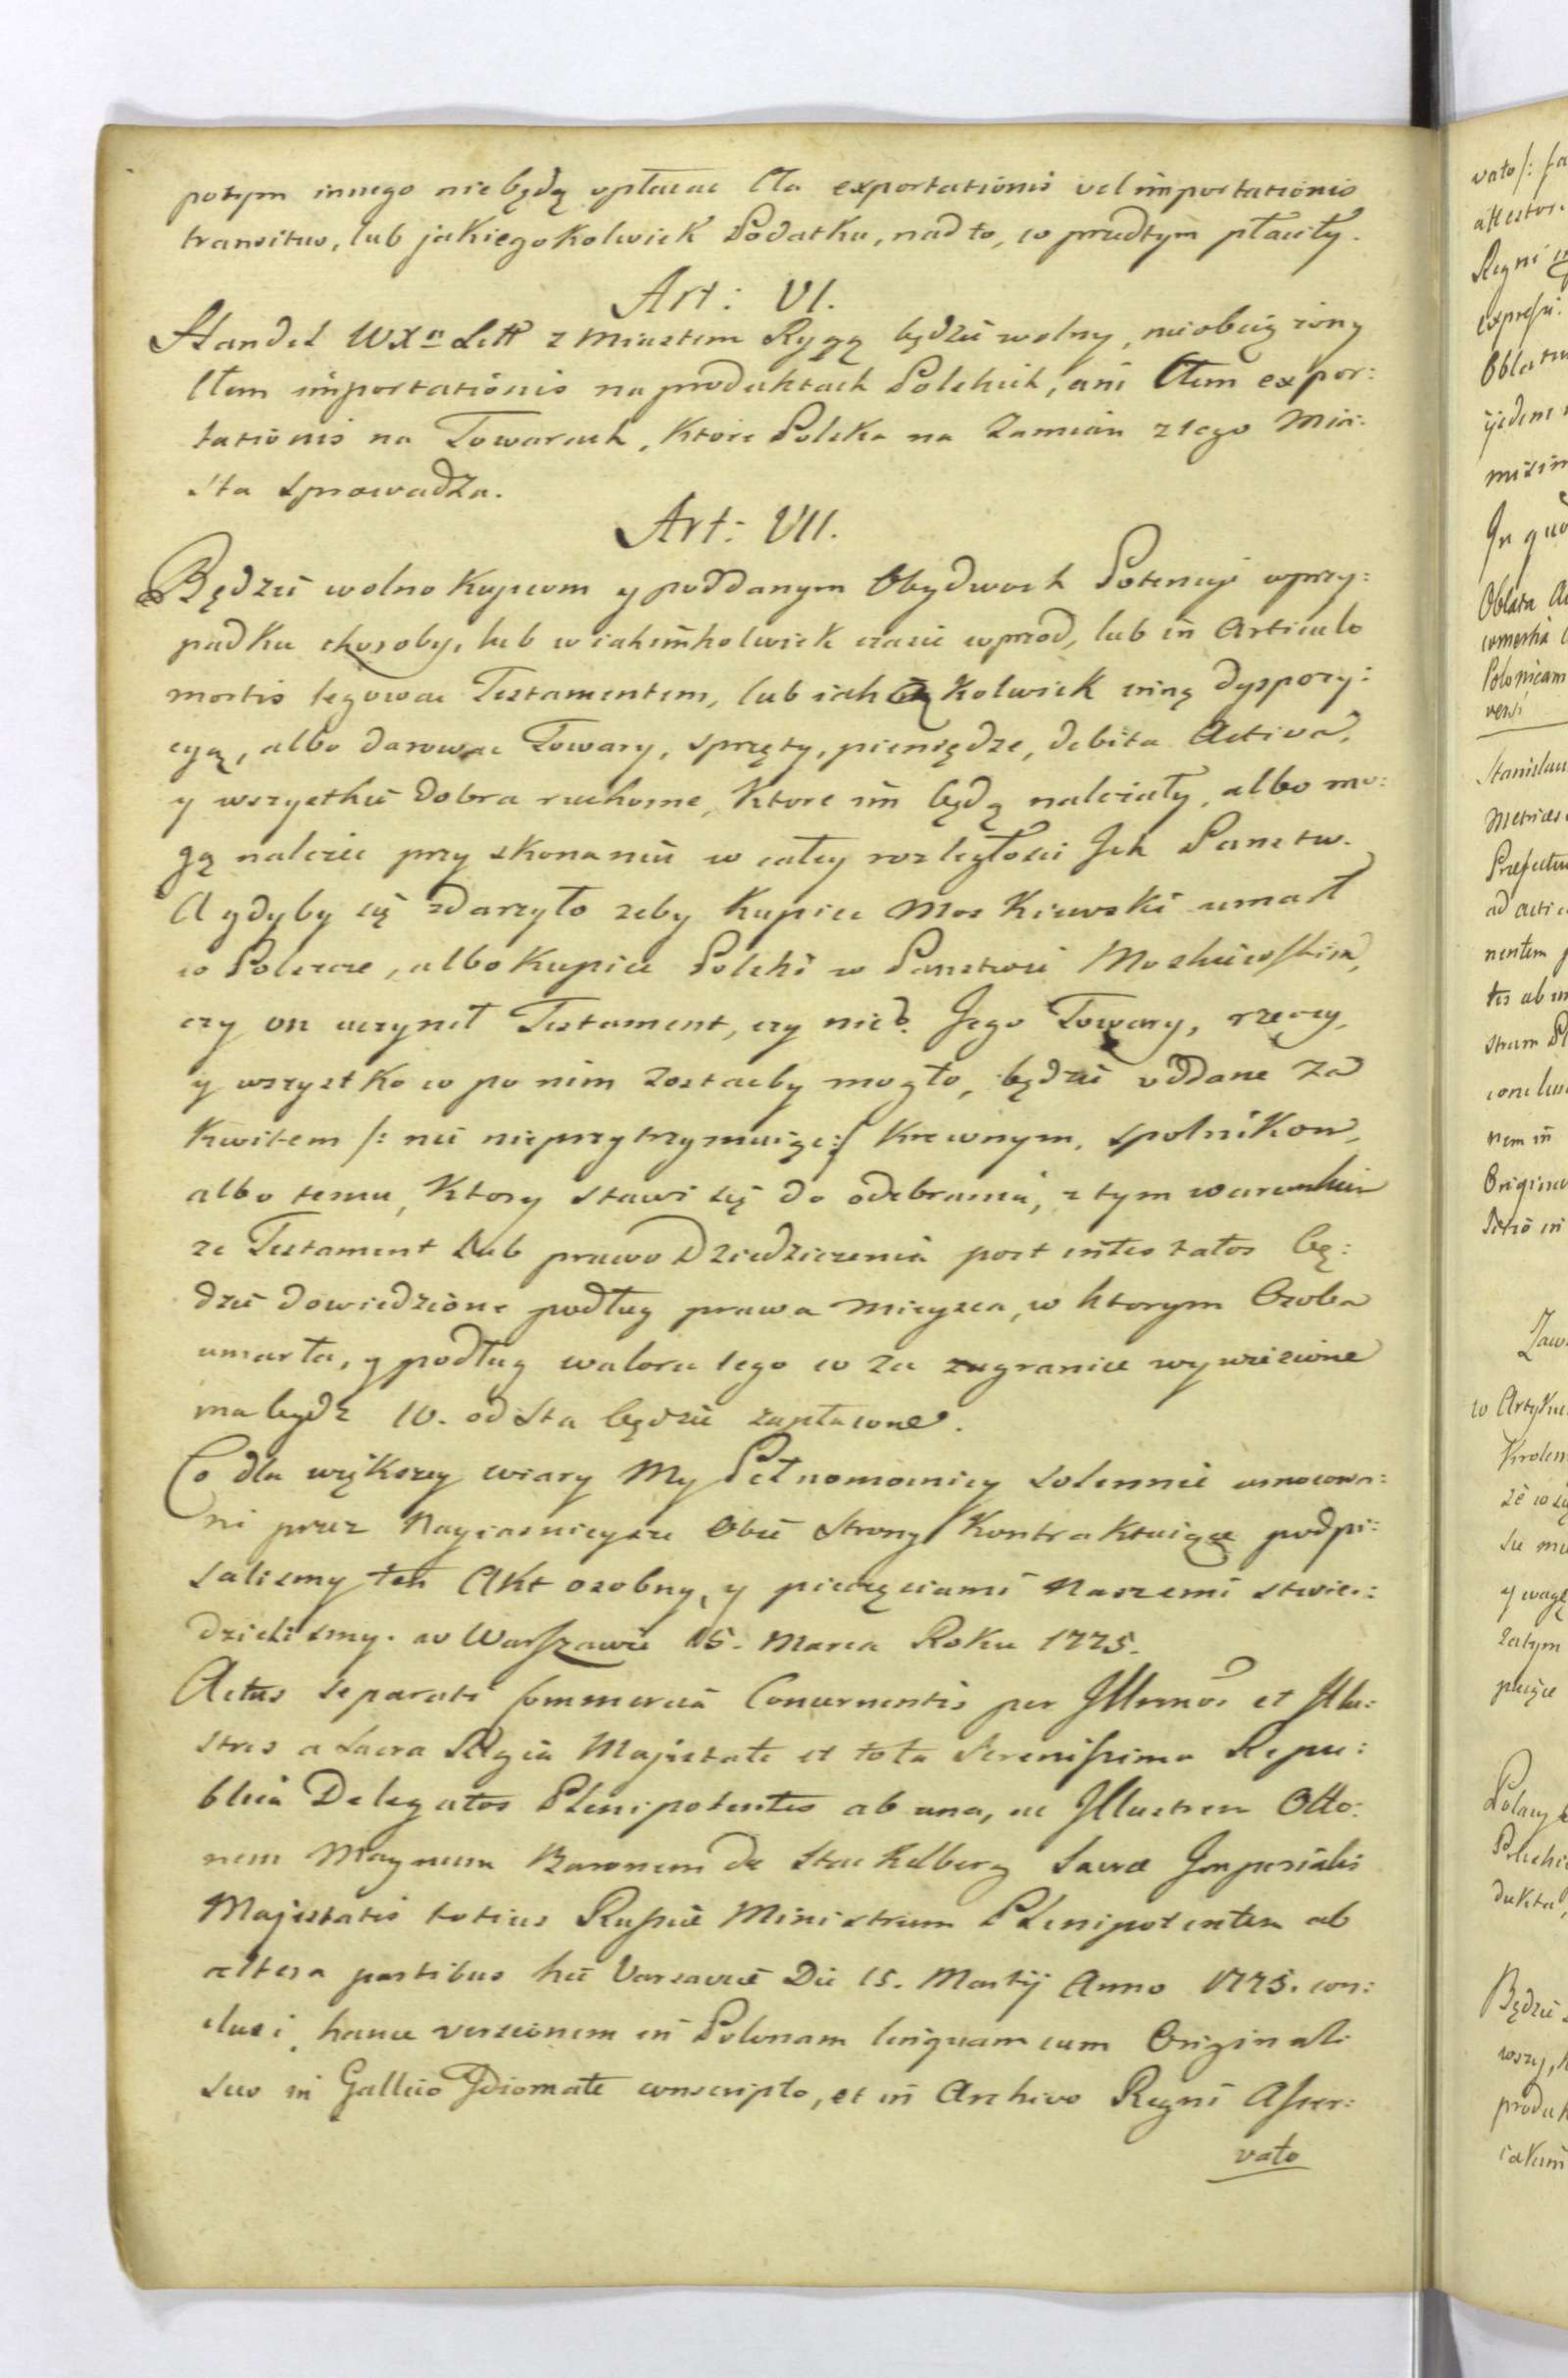 potym innego niebędą opłacac Cła exportationis vel importationis
transitus, lub jakiegokolwiek Podatku, nad to, co przedtym płaciły.
Art: VI.
Handel WXa Litt z Miastem Rygą będzie wolny, nieobciążony
Cłem importationis na produktach Polskich, ani Cłem expor:
tationis na Towarach, ktore Polska na Zamian z tego Mia:
sta sprowadza.
Art: VII.
Będzie wolno Kupcom y poddanym Obydwoch Potencyi w przy:
padku choroby, lub w iakimkolwiek czasie wprzod, lub in Articulo
mortis legowac Testamentem, lub iakąkolwiek inną dyspozy:
cyą, albo darowac Towary, sprzęty, pieniędze, debita Activa,
y wszystkie Dobra ruchome, Ktore im będą należały, albo mo:
gą należec przy skonaniu w całey rozległosci Ich Panstw.
A gdyby się zdarzyło zeby Kupiec Moskiewski umarł
w Polszcze, albo Kupiec Polski w Panstwie Moskiewskim,
czy on uczynił Testament, czy nie? Jego Towary, rzeczy,
y wszystko co po nim zostacby mogło, będzie oddane za
Kwitem /: nic nieprzytrzymuiąc :/ Krewnym, spolnikom,
albo temu, Ktory stawi się do odebrania, z tym warunkiem
ze Testament lub prawo Dziedziczenia post intestatos bę:
dzie dowiedzione podług prawa mieysca, w ktorym Osoba
umarła, y podług waloru tego co za zagranice wywiezione
ma bydz 10. od sta będzie zapłacone.
Co dla większey wiary My Pełnomocnicy solennie umocowa:
ni przez Nayiasnieysze Obie Strony Kontraktuiące podpi:
salismy ten Akt osobny, y pieczęciami Naszemi stwier:
dzielismy. w Warszawie 15. Marca Roku 1775.
Actus separati Commercia Concernentis per Illrmos et Illu:
stres a Sacra Regia Majestate et tota Serenissima Repu:
blica Delegatos Plenipotentes ab una, ac Illustrem Otto:
nem Magnum Baronem de Stackelberg Sacræ Imperialis
Majestatis totius Russiæ Ministrum Plenipotentem ab
altera partibus hic Varsaviæ Die 15. Martij Anno 1775. con:
clusi, hanc versionem in Polonam linguam cum Originali
suo in Gallico Idiomate conscripto, et in Archivo Regni Asser:
vato